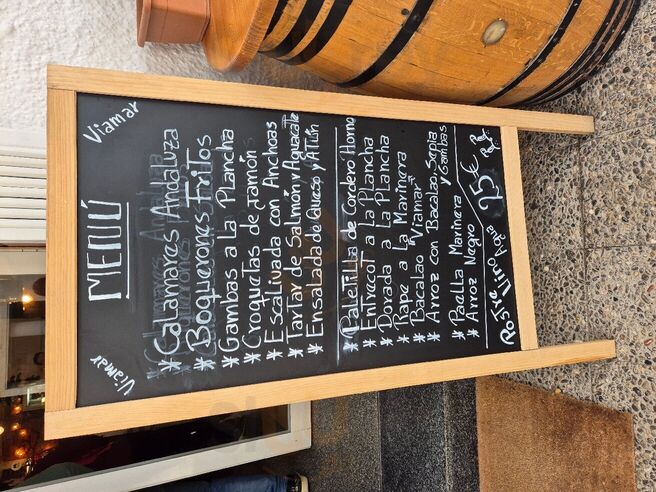 Viamar
MENÚ
Viamar
* Calamares Andaluza
* Boquerones Fritos
* Gambas a la Plancha
* Croquetas de Jamón
* Escalivada con Anchoas
* Tartar de Salmón y Aguacate
* Ensalada de Queso y ATún
* Paletilla de Cordero Horno
* Entrecot a la Plancha
* Dorada a la Plancha
* Rape a la Marinera
* Bacalao "Viamar"
* Arroz con Bacalao, Sepia
y Gambas
* Paella Marinera
* Arroz Negro
Postre Vino Agua
25 €